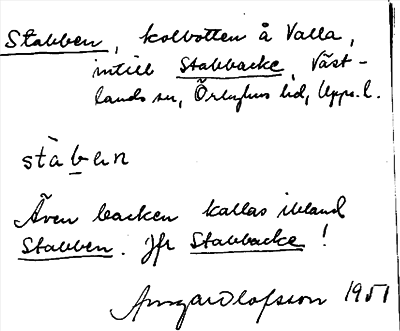 Stabben, kolbotten å Valla,
intill Stabbacke, Väst-
lands sn, Örbyhus hd, Upps. l.
stàben
Även backen kallas ibland
Stabben. Jfr Stabbacke!
Ansgar Olofsson 1951